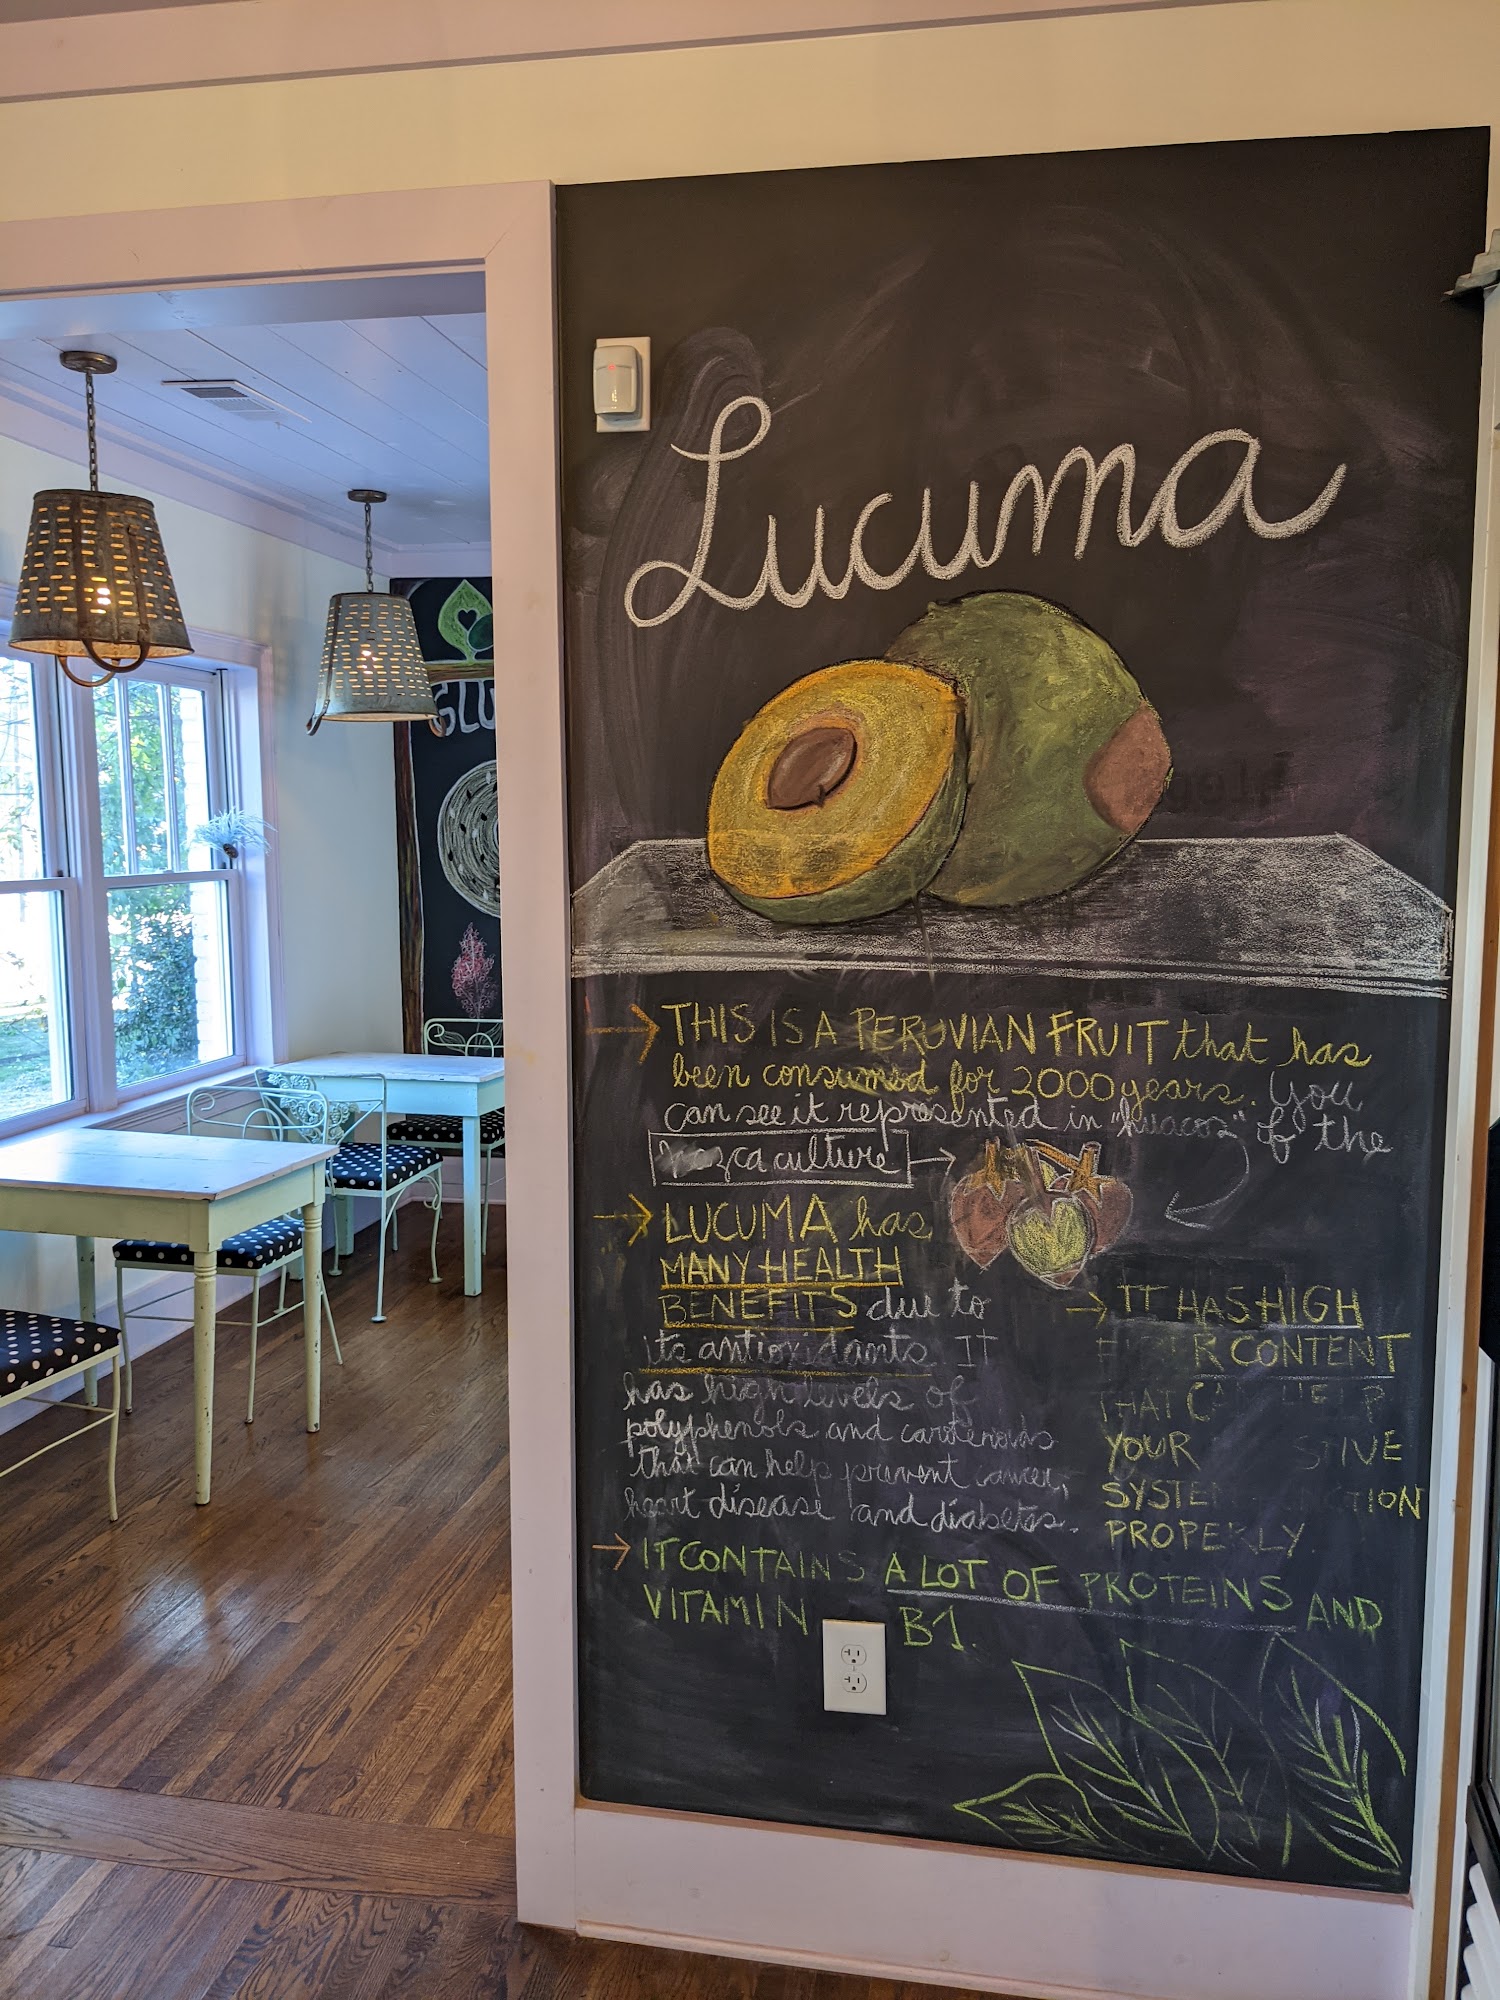 Lucuma
GLU
THIS IS A PERUVIAN FRUIT that has
been consumed for 2000 years. You
can see it represented in "huacos" of the
culture
LUCUMA has
MANY HEALTH
BENEFITS due to
its antioxidants. IT
has high levels of
polyphenols and carotenoids
that can help prevent cancer,
heart disease and diabetes.
IT HAS HIGH
CONTENT
THAT CAN HELP
YOUR
SYSTEM
PROPERLY.
IT CONTAINS A LOT OF PROTEINS AND
VITAMIN B1.